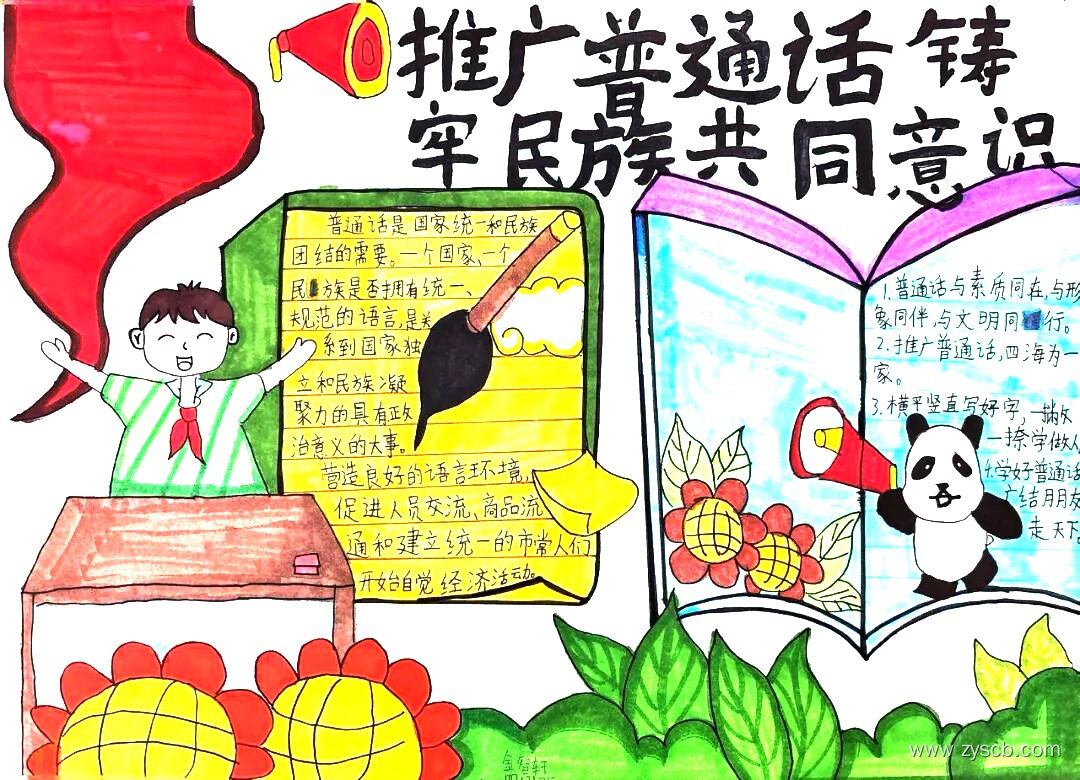 推广普通话 铸
牢民族共同意识
普通话是国家统一和民族
团结的需要。一个国家、一个
民族是否拥有统一、
规范的语言,是关
系到国家独
立和民族凝
聚力的具有政
治意义的大事。
营造良好的语言环境,
促进人员交流、商品流
通和建立统一的市常人们
开始自觉经济活动。
1.普通话与素质同在,与形
象同伴,与文明同行。
2.推广普通话,四海为一
家。
3.横平竖直写好字,一撇
一捺学做人
学好普通话
广结朋友
走天下。
www.zyscb.com